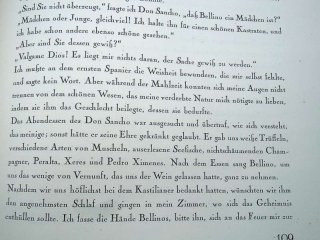 „Sind Sie nicht überzeugt,“ fragte ich Don Sancho, „daß Bellino ein Mädchen ist?“
„Mädchen oder Junge, gleichviel! Ich halte ihn für einen schönen Kastraten, und
ich habe schon andere ebenso schöne gesehen.“
„Aber sind Sie dessen gewiß?“
„Valgame Dios! Es liegt mir nichts daran, der Sache gewiß zu werden.“
Ich mußte an dem ernsten Spanier die Weisheit bewundern, die mir selbst fehlte,
und sagte kein Wort. Aber während der Mahlzeit konnten sich meine Augen nicht
trennen von dem schönen Wesen, das meine verderbte Natur mich nötigte zu lieben,
indem sie ihm das Geschlecht beilegte, dessen sie bedurfte.
Das Abendessen des Don Sancho war ausgesucht und übertraf, wie sich versteht,
das meinige; sonst hätte er seine Ehre gekränkt geglaubt. Er gab uns weiße Trüffeln,
verschiedene Arten von Muscheln, auserlesene Seefische, nichtschäumenden Cham-
pagner, Peralta, Xeres und Pedro Ximenes. Nach dem Essen sang Bellino, um
uns das wenige von Vernunft, das uns der Wein gelassen hatte, ganz zu nehmen.
Nachdem wir uns höflichst bei dem Kastilianer bedankt hatten, wünschten wir ihm
den angenehmsten Schlaf und gingen in mein Zimmer, wo sich das Geheimnis
enthüllen sollte. Ich fasse die Hände Bellinos, bitte ihn, sich an das Feuer mir zur
109